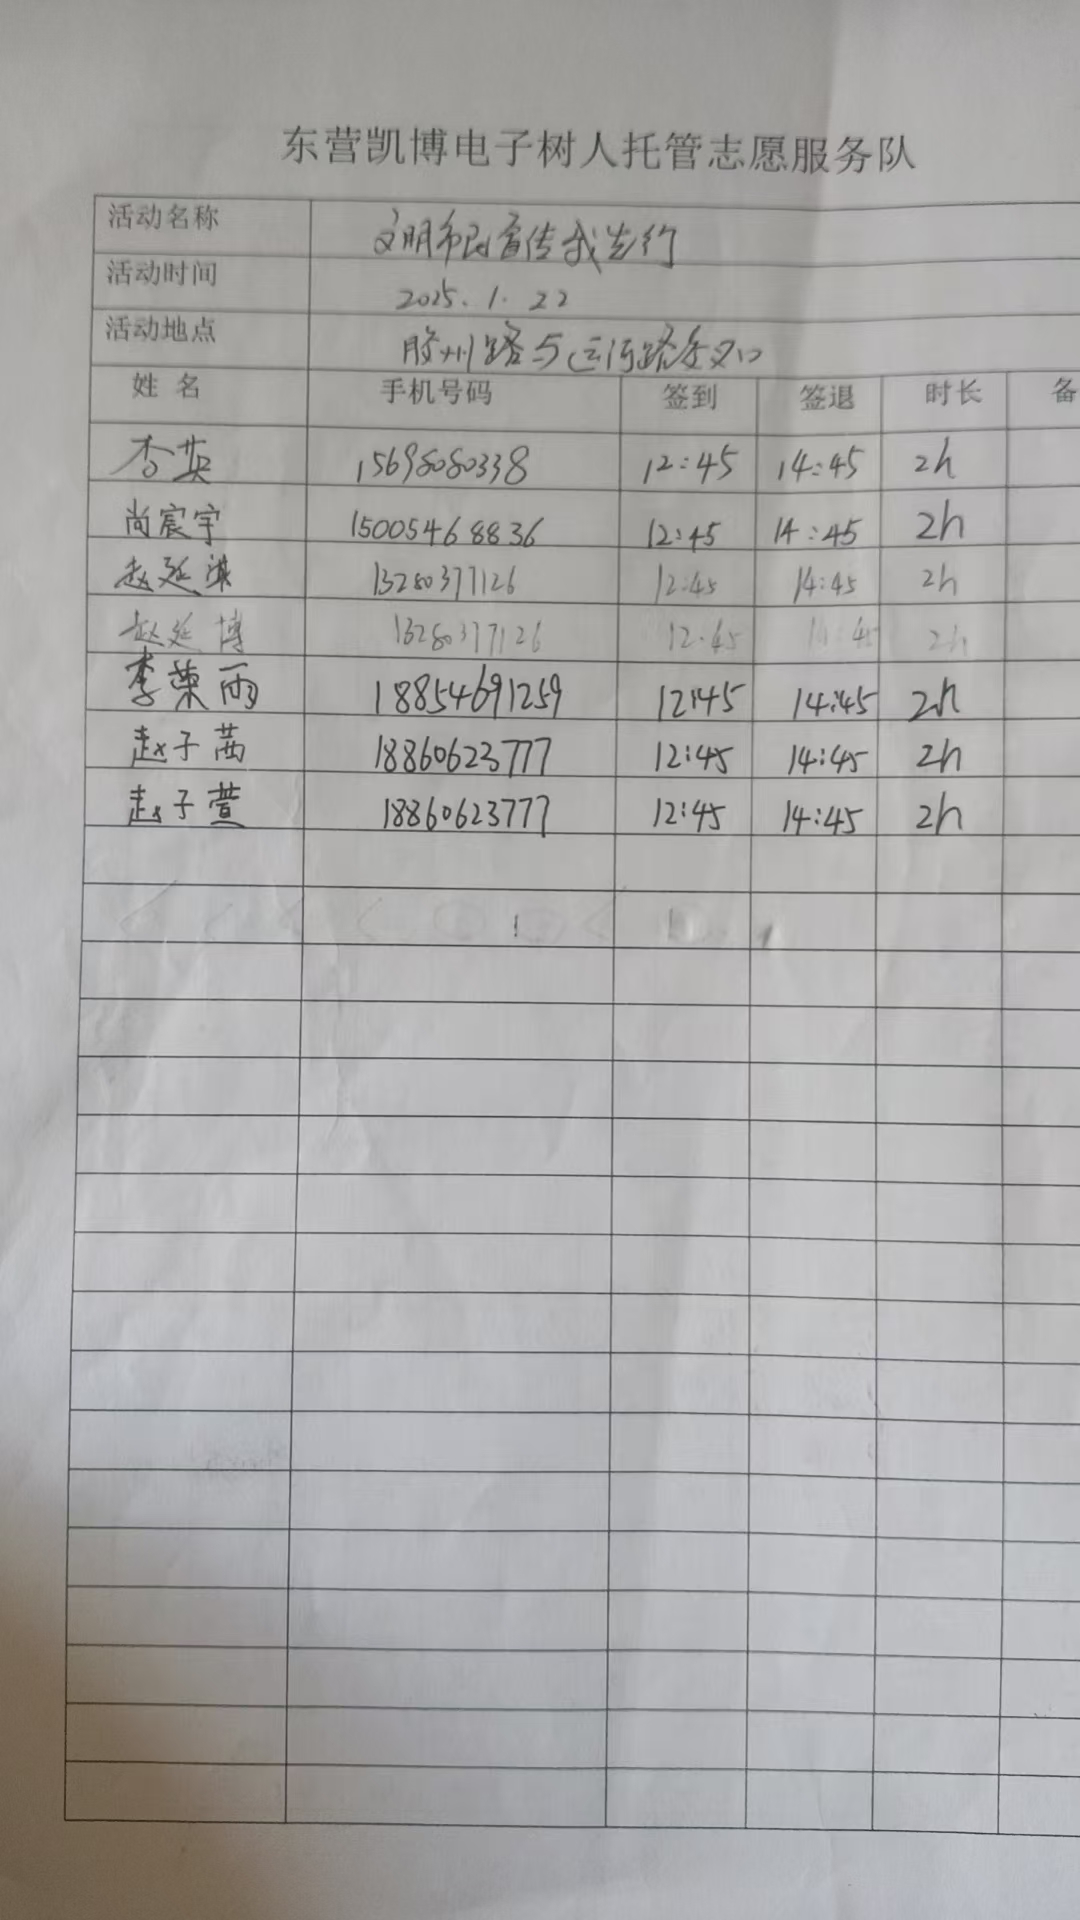 东营凯博电子树人托管志愿服务队
活动名称 文明市民宣传我先行
活动时间 2025.1.22
活动地点 胶州路与运河路交叉口
姓名 手机号码 签到 签退 时长 备
李英 15698080338 12:45 14:45 2h
尚宸宇 15005468836 12:45 14:45 2h
赵延淇 13280377126 12:45 14:45 2h
赵延博 13280377126 12:45 14:45 2h
李荣雨 18854691259 12:45 14:45 2h
赵子茜 18860623777 12:45 14:45 2h
赵子萱 18860623777 12:45 14:45 2h